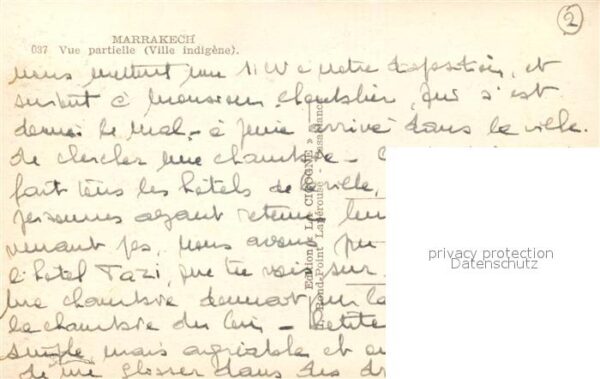 2
MARRAKECH
037 Vue partielle (Ville indigène).
nous mettent une à notre disposition, et
surtout à monsieur qui s'est
donné le mal - à peine arrivé dans la ville.
de chercher une chambre -
fait tous les hôtels de la ville,
personnes ayant retenu
venant pas, nous avons pu
l'hôtel Tazi, que tu vois sur
une chambre donnant sur la
la chambre du - petite
simple mais agréable et
de me glisser dans des
Edition « La CIGOGNE »
Rond-Point Lapérouse - Casablanca
privacy protection
Datenschutz